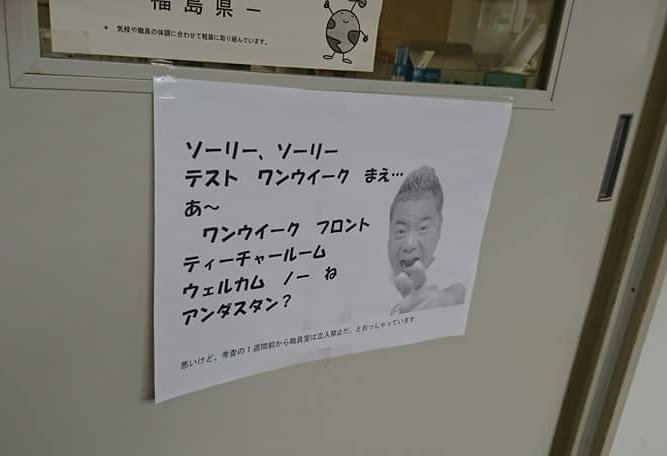 福島県ー
* 気候や職員の体調に合わせて軽装に取り組んでいます。
ソーリー、ソーリー
テスト ワンウイーク まえ…
あ~
ワンウイーク フロント
ティーチャールーム
ウェルカム ノー ね
アンダスタン?
悪いけど、考査の1週間前から職員室は立入禁止だ、とおっしゃっています